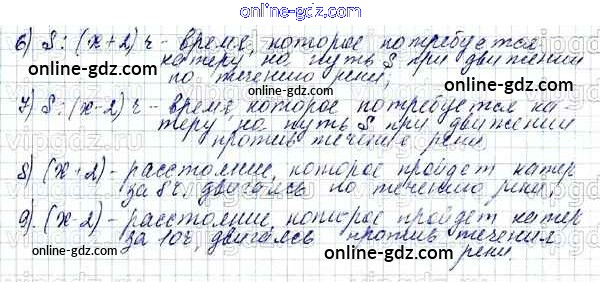 online-gdz.com
6) S : (x+2) ч - время, которое потребуется
катеру на путь S при движении
по течению реки;
online-gdz.com online-gdz.com
7) S : (x-2) ч - время, которое потребуется ка-
теру на путь S при движении
против течения реки.
online-gdz.com
8) (x+2) - расстояние, которое пройдет катер
за 8ч, двигаясь по течению реки;
online-gdz.com
9) (x-2) - расстояние, которое пройдет катер
за 10ч, двигаясь против течения
реки.
online-gdz.com online-gdz.com